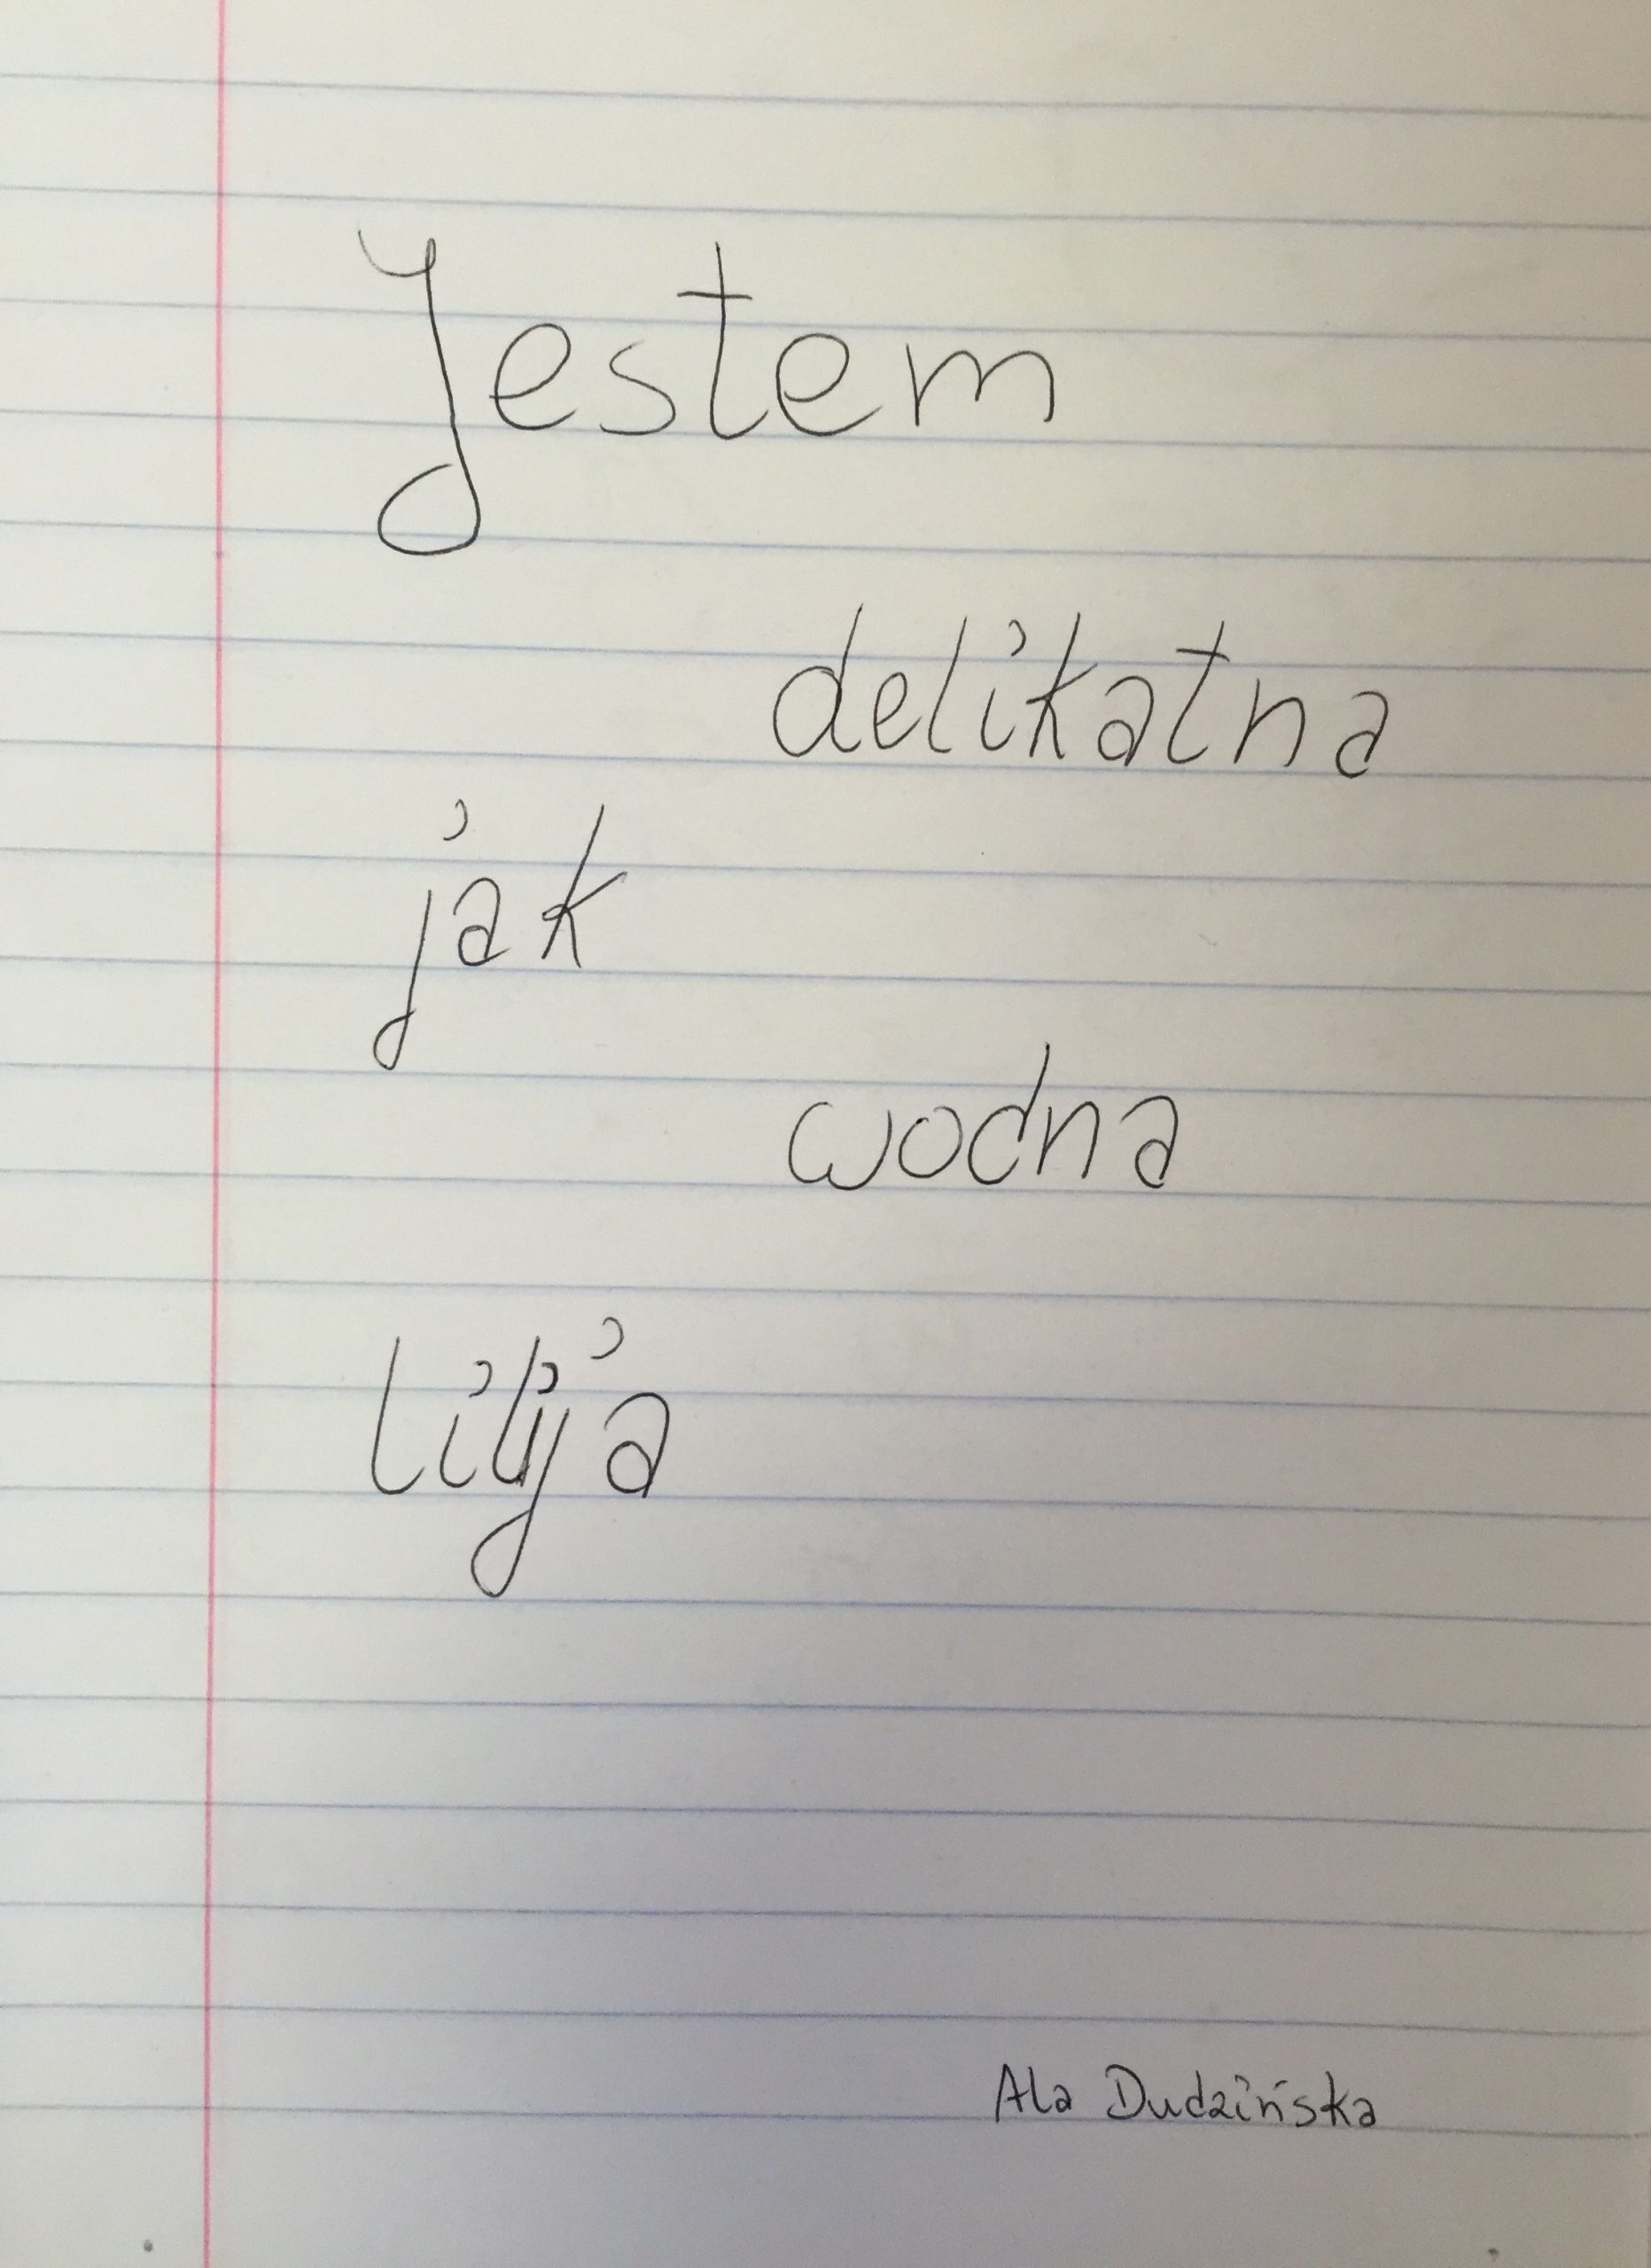 Jestem
delikatna
jak
wodna
lilija
Ala Dudzińska